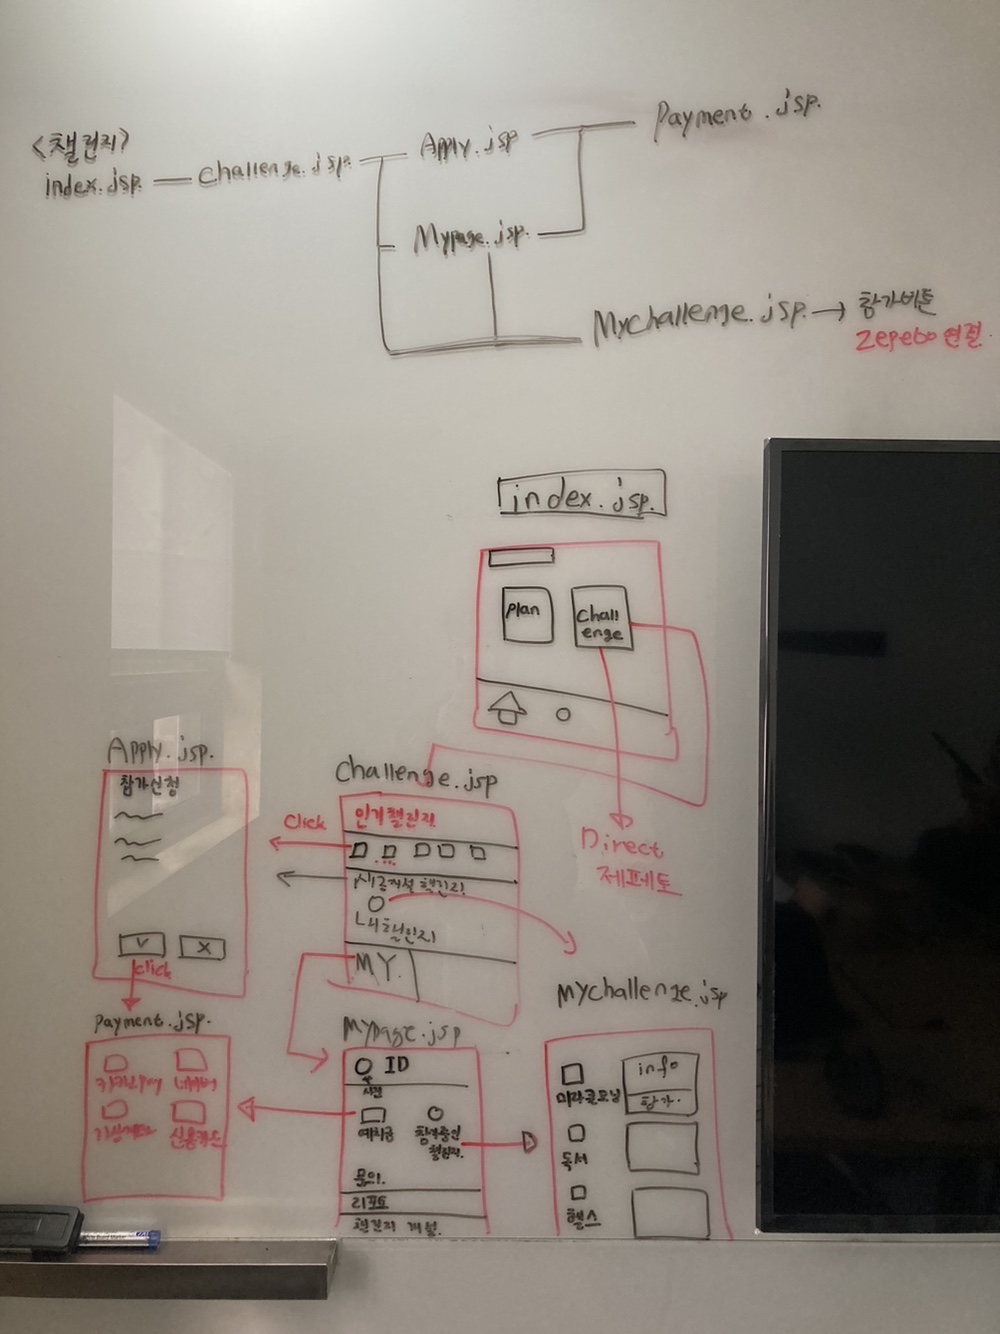 <챌린지>
index.jsp. — challenge.jsp.
Apply.jsp
Payment.jsp.
Mypage.jsp.
Mychallenge.jsp. → 참가버튼
Zepeto 연결.
index.jsp.
Plan
Chall
enge
Direct
제페토
Apply.jsp.
참가신청
V
X
click
challenge.jsp
인기챌린지
click
내챌린지
MY.
Payment.jsp.
카카오pay
네이버
가상계좌
신용카드
Mypage.jsp
ID
사진
예치금
참여중인
챌린지.
문의.
리포트
챌린지 개설.
Mychallenge.jsp
미라클모닝
info
참가.
독서
헬스